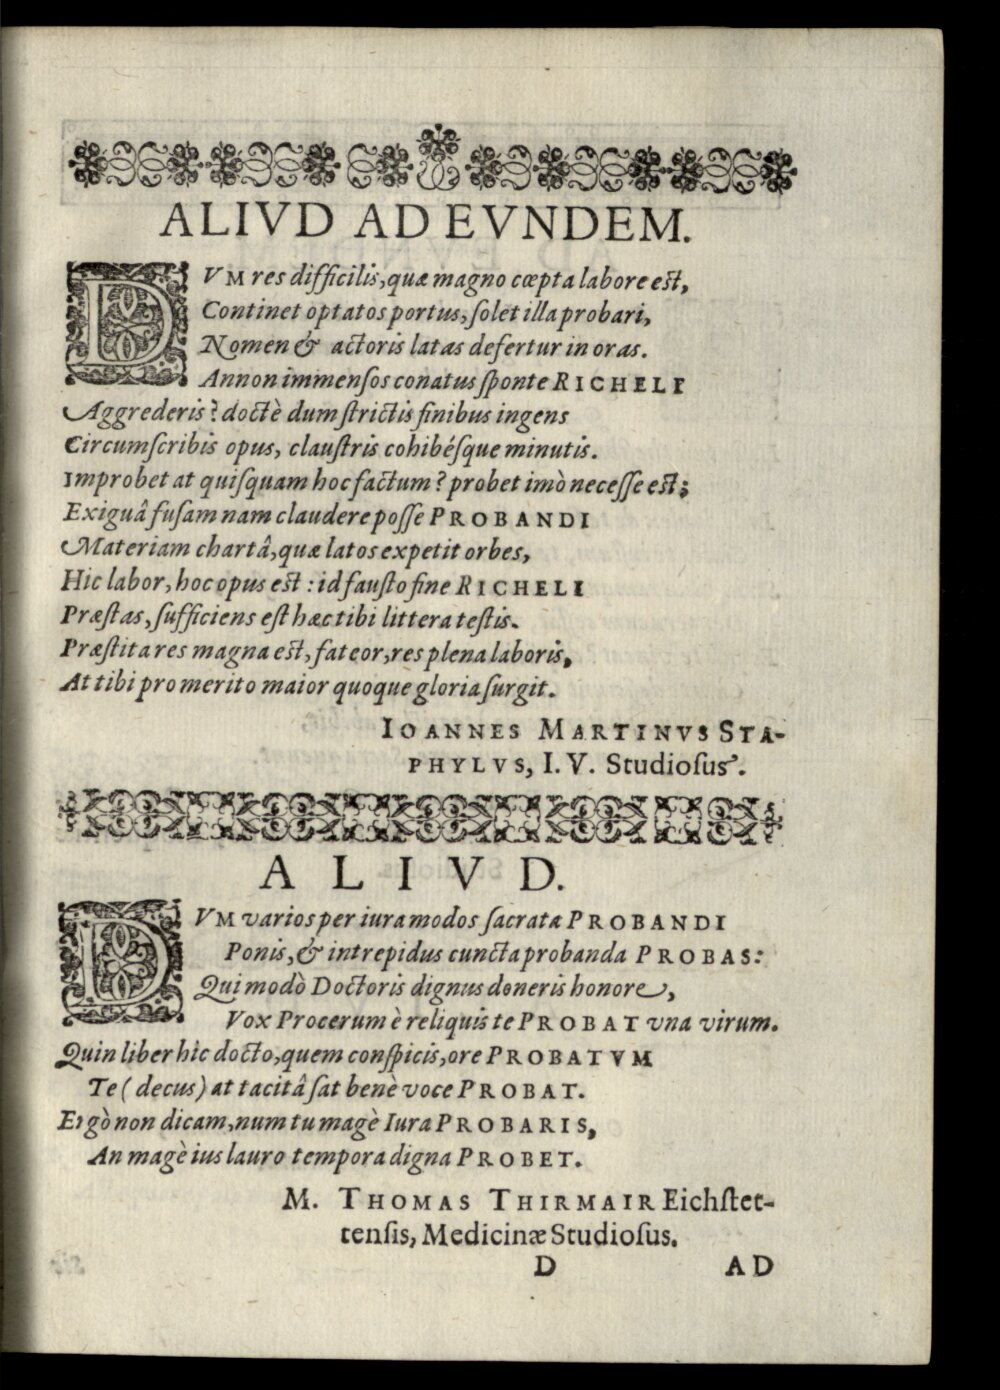 ALIVD AD EVNDEM.
DVM res difficilis, quæ magno cœpta labore est,
Continet optatos portus, solet illa probari,
Nomen & actoris latas defertur in oras.
Annon immensos conatus sponte RICHELI
Aggrederis? doctè dum strictis finibus ingens
Circumscribis opus, claustris cohibésque minutis.
Improbet at quisquam hoc factum? probet imò necesse est;
Exiguâ fusam nam claudere posse PROBANDI
Materiam chartâ, quæ latos expetit orbes,
Hic labor, hoc opus est: id fausto fine RICHELI
Præstas, sufficiens est hæc tibi littera testis.
Præstita res magna est, fateor, res plena laboris,
At tibi pro merito maior quoque gloria surgit.
IOANNES MARTINVS STA-
PHYLVS, I. V. Studiosus.
ALIVD.
DVM varios per iura modos sacrata PROBANDI
Ponis, & intrepidus cuncta probanda PROBAS:
Qui modò Doctoris dignus doneris honore,
Vox Procerum è reliquis te PROBAT vna virum.
Quin liber hic docto, quem conspicis, ore PROBATVM
Te (decus) at tacitâ sat benè voce PROBAT.
Ergò non dicam, num tu magè Iura PROBARIS,
An magè ius lauro tempora digna PROBET.
M. THOMAS THIRMAIR Eichstet-
tensis, Medicinæ Studiosus.
D AD